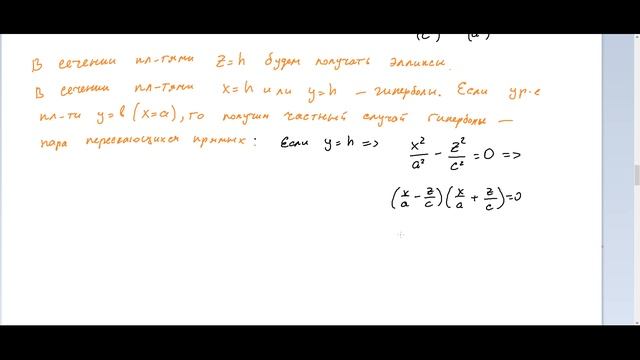 В сечении пл-тями z=h будем получать эллипсы.
В сечении пл-тями x=h или y=h — гиперболы. Если ур-е
пл-ти y=b (x=a), то получим частный случай гиперболы —
пара пересекающихся прямых: Если y=h => x²/a² - z²/c² = 0 =>
(x/a - z/c)(x/a + z/c)=0